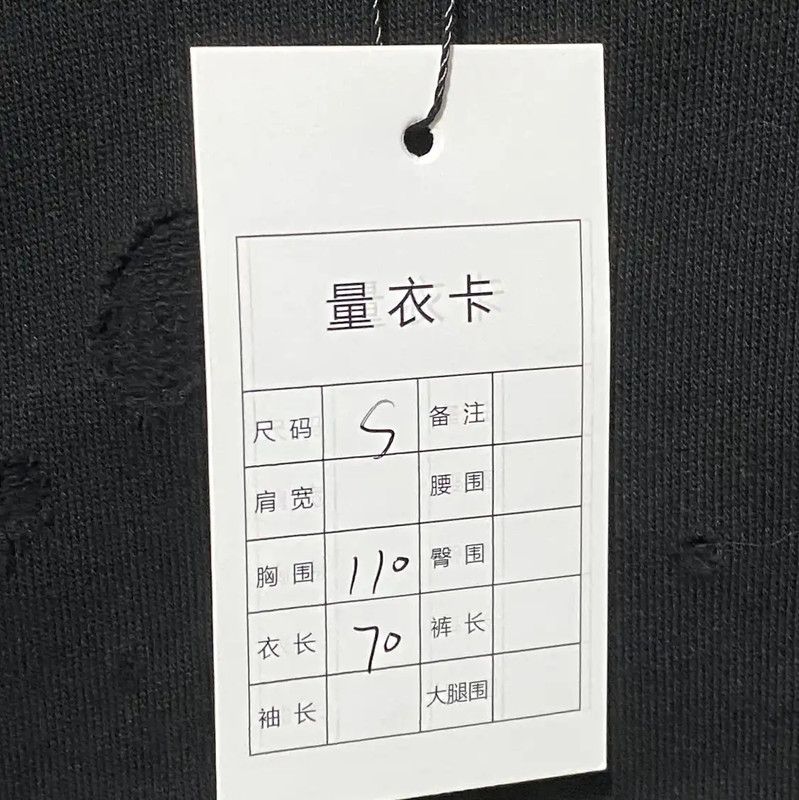 量衣卡
尺码 S 备注
肩宽 腰围
胸围 110 臀围
衣长 70 裤长
袖长 大腿围